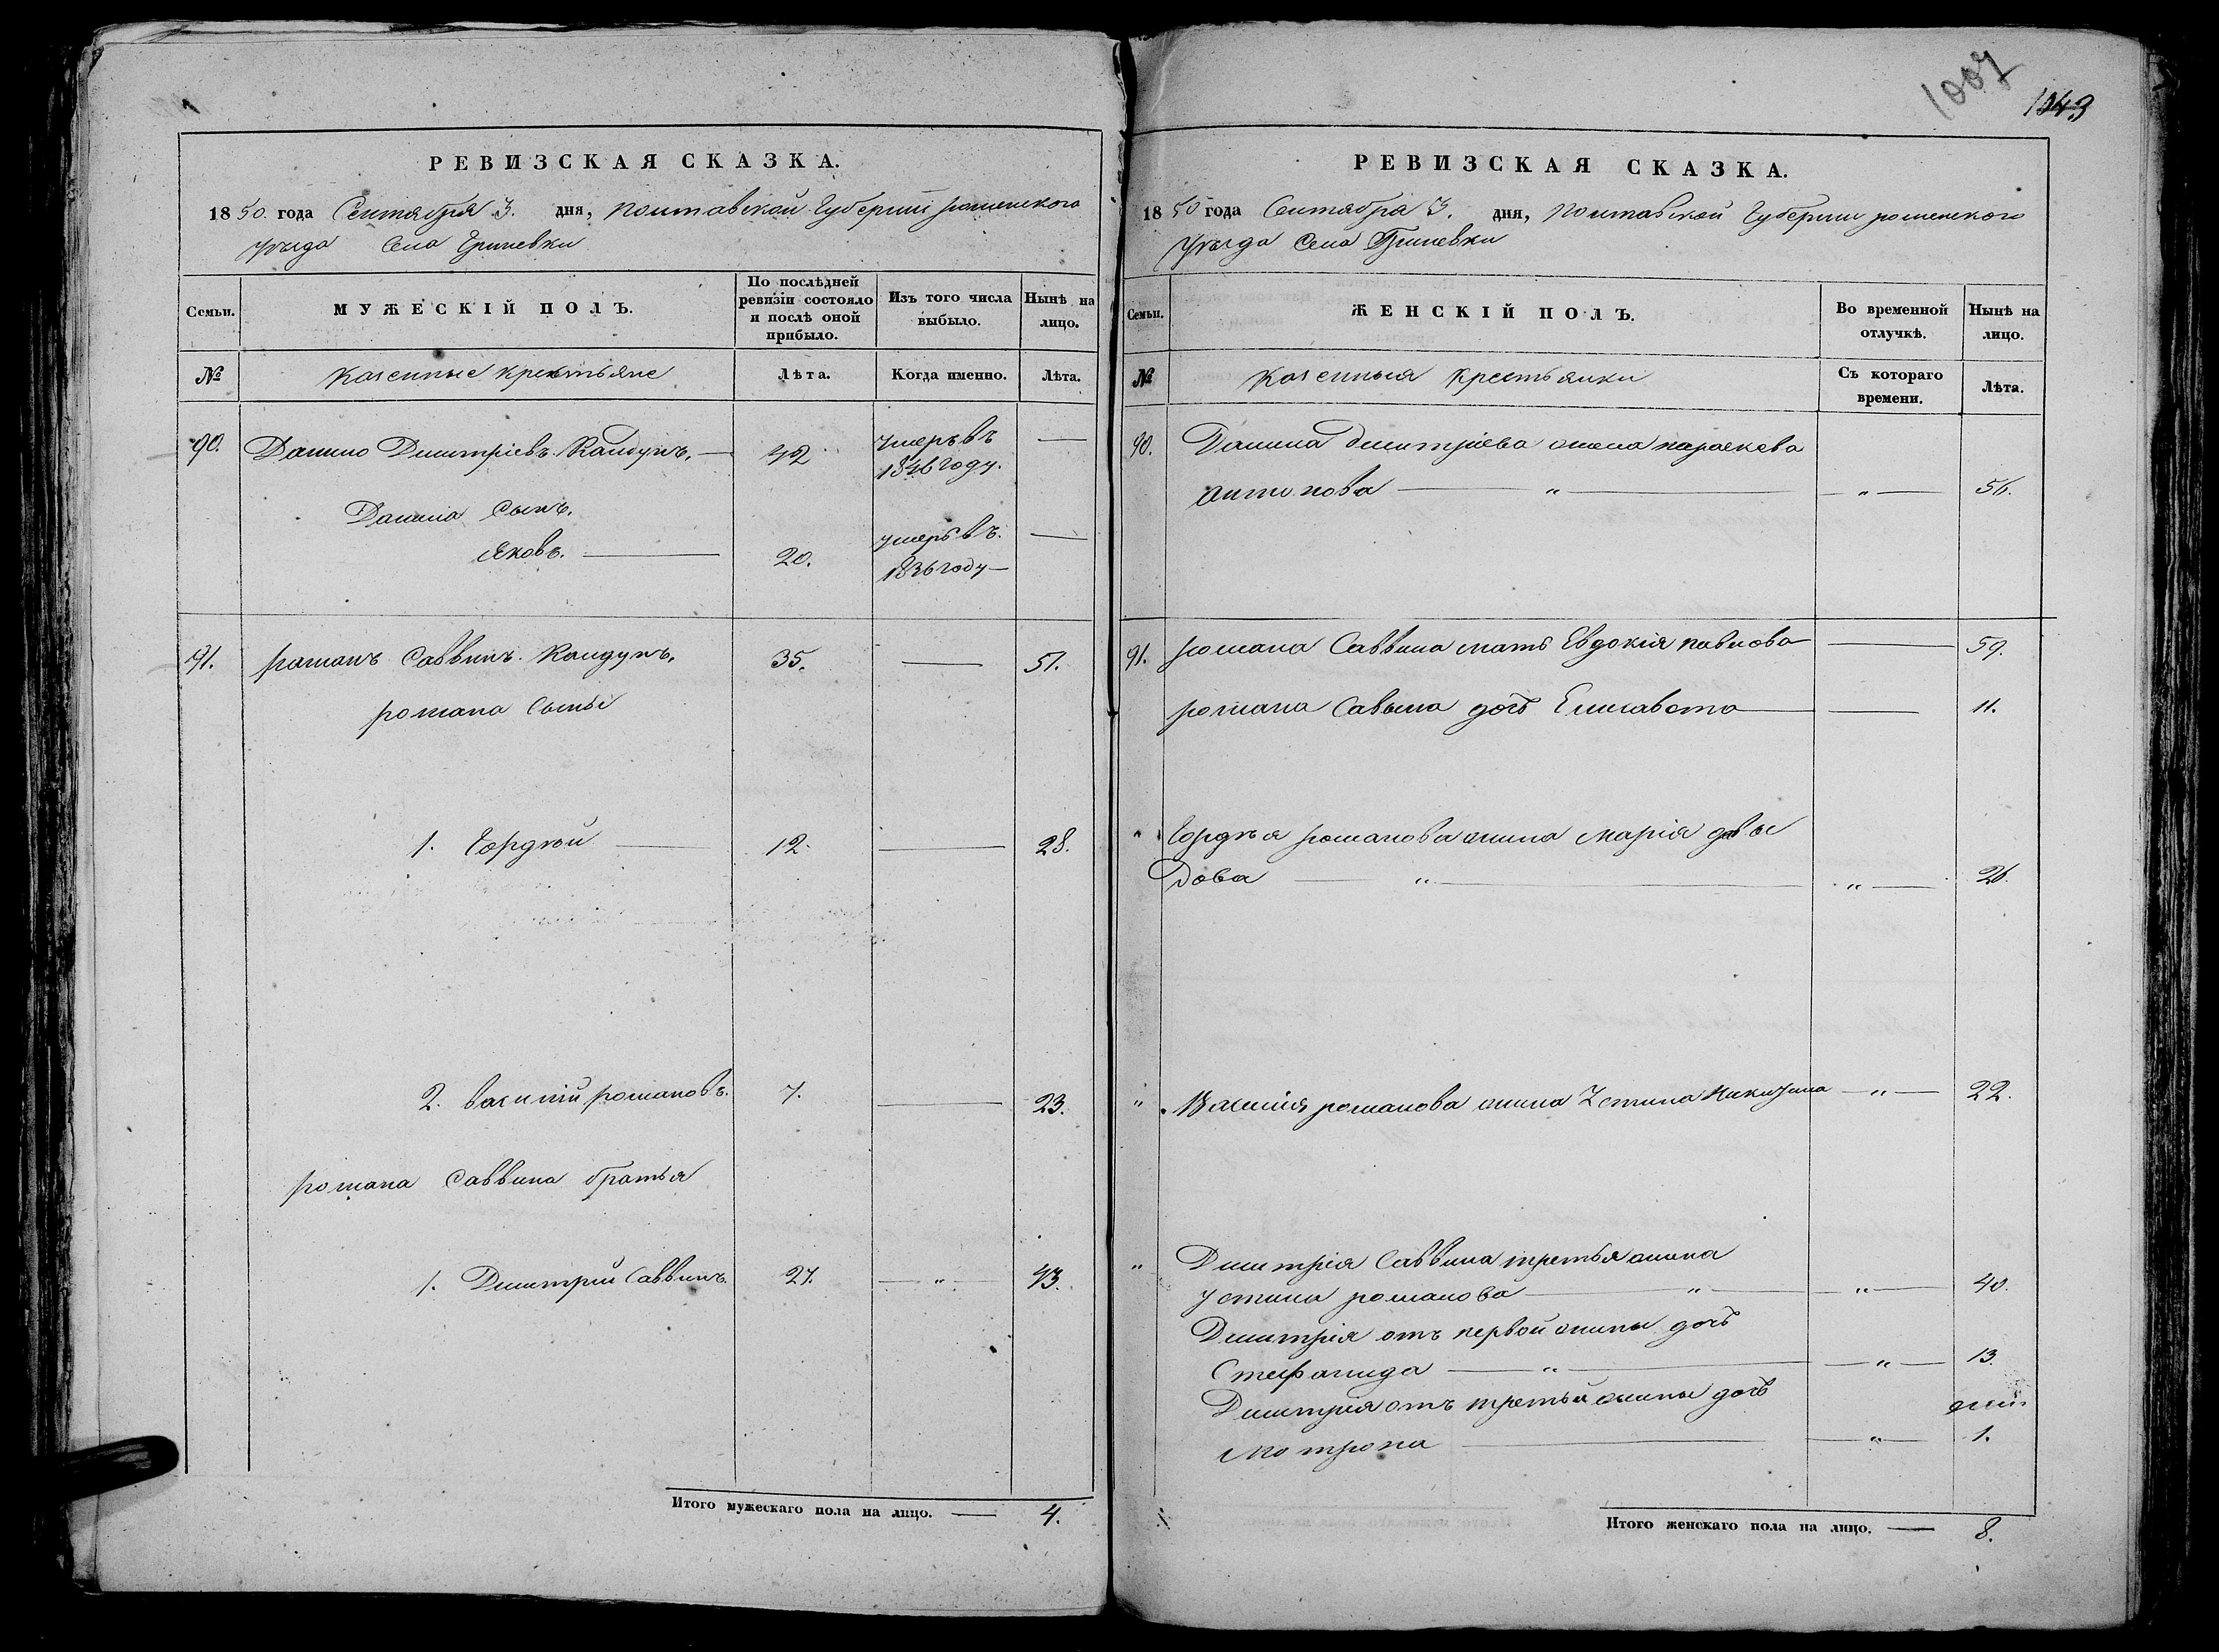 РЕВИЗСКАЯ СКАЗКА.
1850. года Сентября 3. дня, Полтавской Губерніи роменского
уѣзда Села Гриневки
Семьи.
МУЖЕСКІЙ ПОЛЪ.
По послѣдней ревизіи состояло и послѣ оной прибыло.
Изъ того числа выбыло.
Нынѣ на лицо.
№
Казенные крестьяне
Лѣта.
Когда именно.
Лѣта.
90. Данило Дмитріевъ Кандунъ. — 42 умеръ въ —
1846 году.
Данила Сынъ.
Яковъ. — 20. умеръ въ. —
1836 году —
91. романъ Саввинъ. Кандунъ. 35. — 51.
романа Сыны
1. Гордѣй — 12. — 28.
2. василій романовъ. 7. — 23.
романа Саввина братья
1. Дмитрій Саввинъ. 27. — „ — 43.
Итого мужескаго пола на лицо. — 4.
1007
1043
РЕВИЗСКАЯ СКАЗКА.
1850 года Сентября 3. дня, Полтавской Губерніи роменского
уѣзда Села Гриневки
Семьи.
ЖЕНСКІЙ ПОЛЪ.
Во временной отлучкѣ.
Нынѣ на лицо.
№
Казенныя крестьянки
Съ котораго времени.
Лѣта.
90. Данила Дмитріева жена параскева
антонова — „ — — „ — 56.
91. романа Саввина мать Евдокія павлова — 59.
романа Савына дочь Елисавета — — 11.
„ Гордѣя романова жина Марія давы
Дова — „ — „ — 26.
„ Василія романова жина Устина Никитина — „ — 22.
„ Дмитрія Саввина третья жина
устина романова — „ — — „ — 40.
Дмитрія отъ первой жины дочь
Стефанида — „ — — „ — 13.
Дмитрія отъ третьй жины дочь
Мотрона — — „ — 1.
Итого женскаго пола на лицо. — 8.